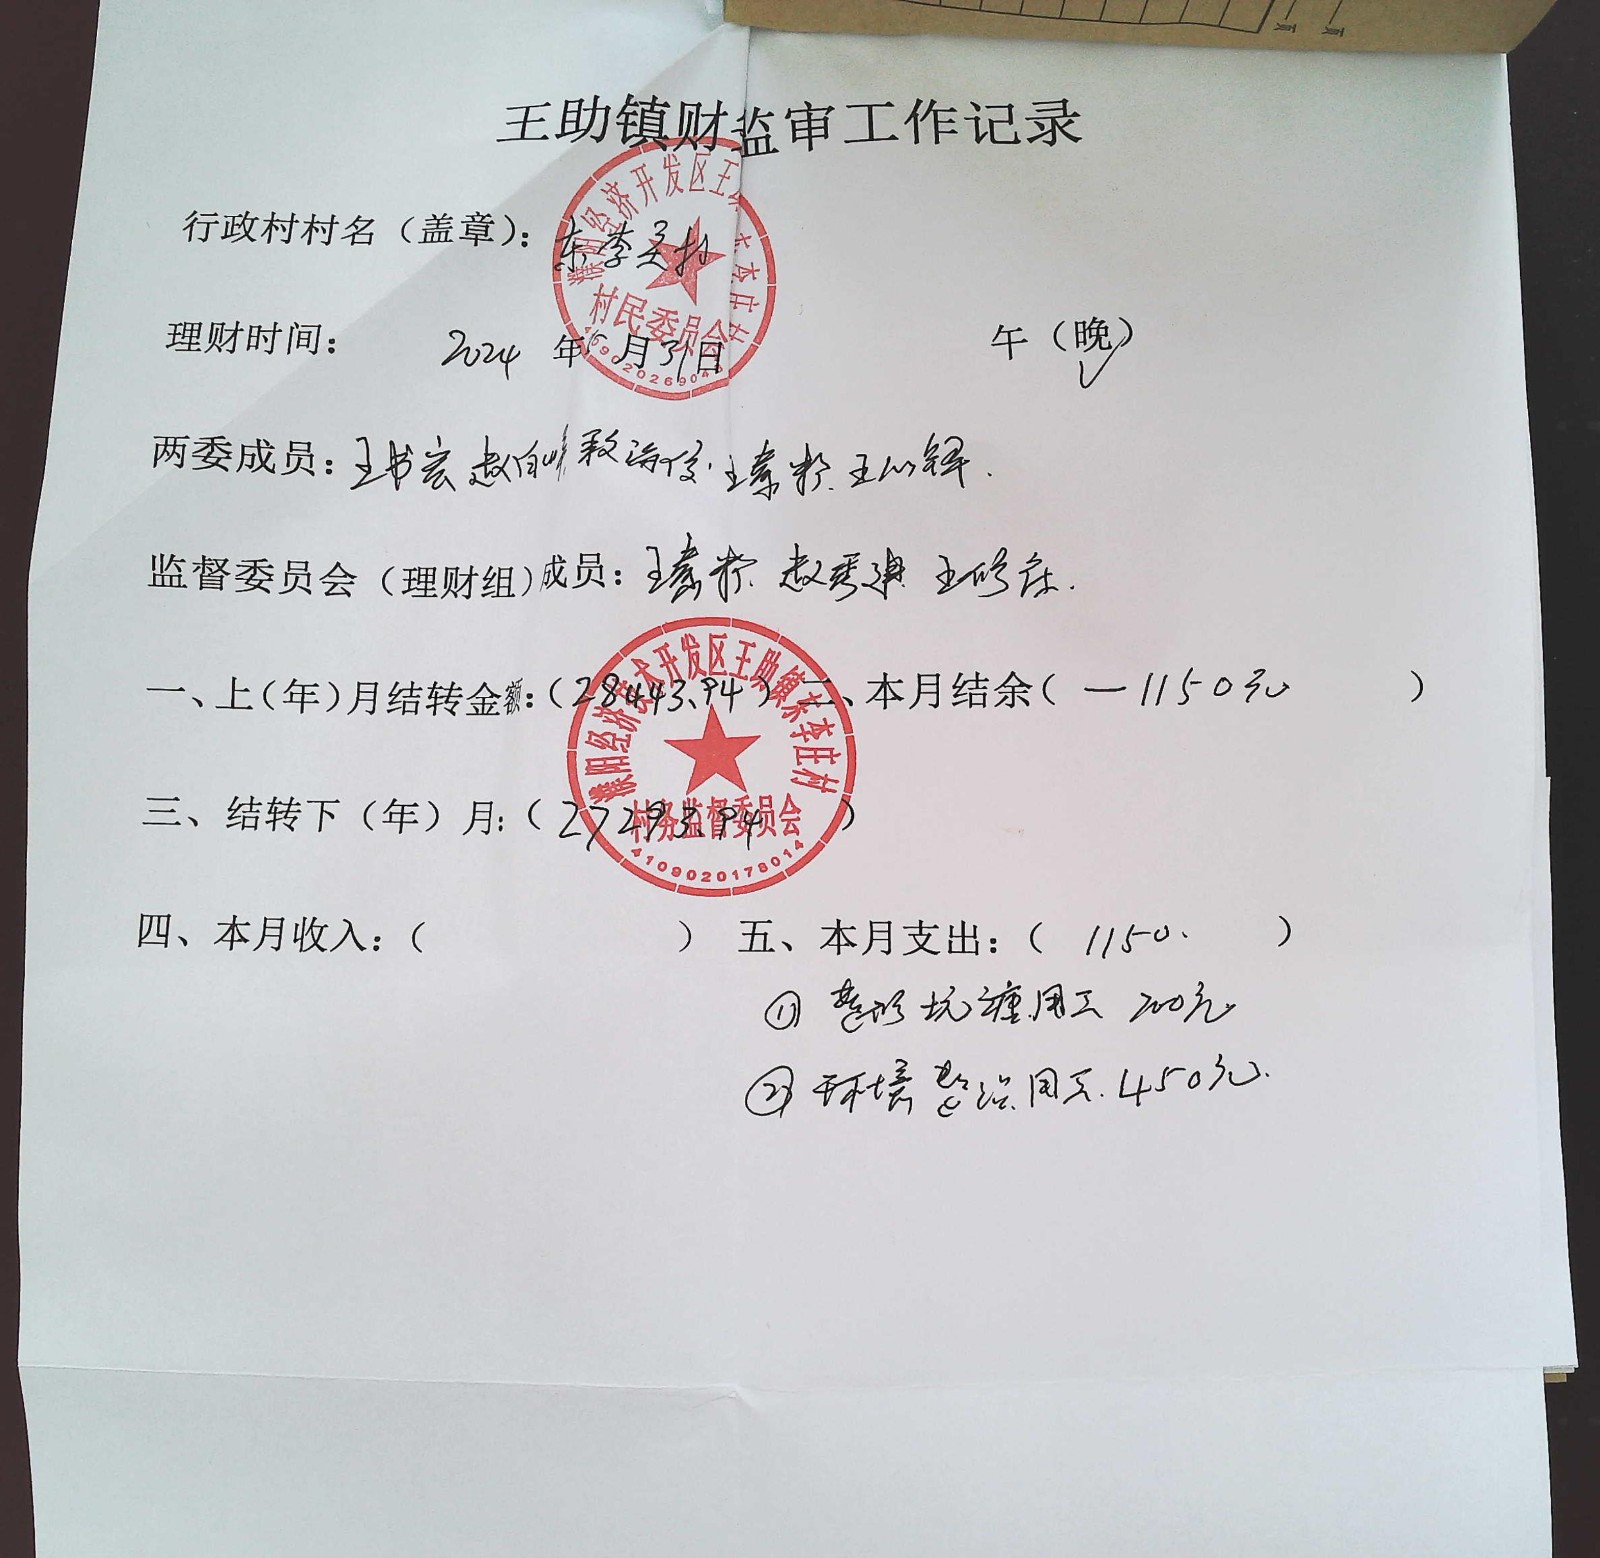 王助镇财监审工作记录
行政村村名（盖章）：东李庄村
理财时间： 2024 年 5 月 31 日 午（晚）
两委成员：王书宏 赵自 王素粉 王
监督委员会（理财组）成员：王素粉 赵秀 王修
一、上（年）月结转金额：（28443.94） 二、本月结余（ —1150元 ）
三、结转下（年）月：（27293.94 ）
四、本月收入：（ ） 五、本月支出：（ 1150. ）
① 整修坑塘用工 700元
② 环境整治用工. 450元.
村民委员会
濮阳经济技术开发区王助镇东李庄村
村务监督委员会
4109020178014